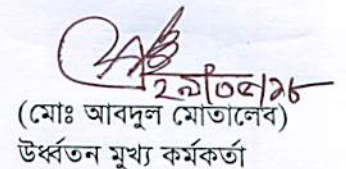 ২৯/০৫/১৮
(মোঃ আবদুল মোতালেব)
উর্ধ্বতন মুখ্য কর্মকর্তা